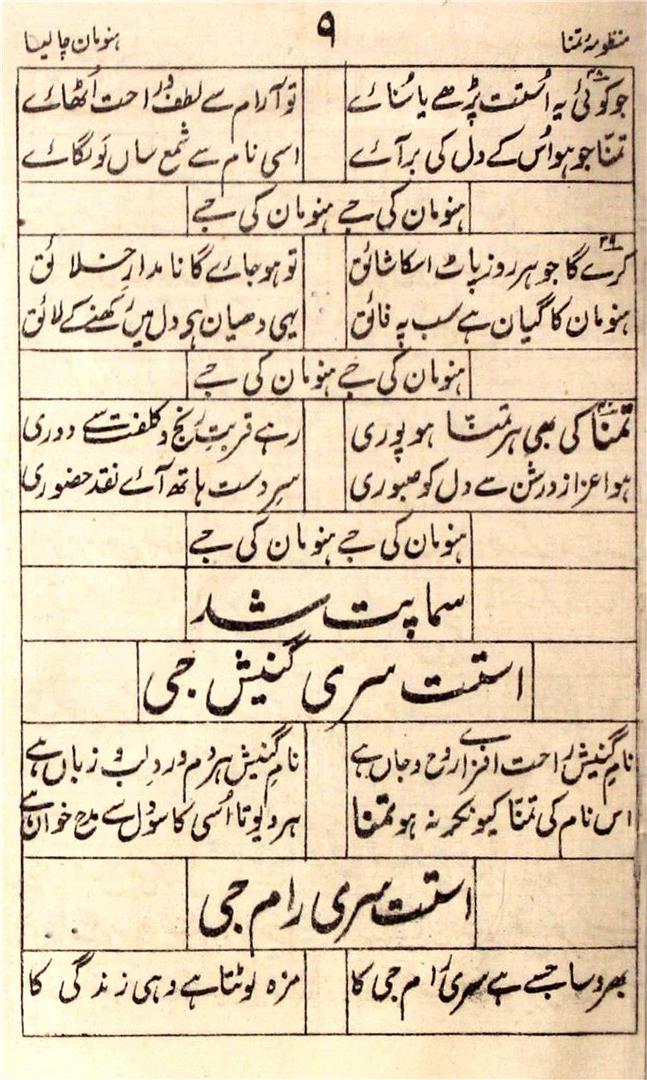 منظومۂ تمنا ۹ ہنومان چالیسا
۳۸
جو کوئی یہ اُستت پڑھے یا سُنائے تو آرام سے لطف و راحت اُٹھائے
تمنّا جو ہو اُس کے دل کی بر آئے اسی نام سے شمع ساں لَو لگائے
ہنومان کی جے ہنومان کی جے
۳۹
کرے گا جو ہر روز پاٹ اسکا شائق تو ہو جائے گا نامدارِ خلائق
ہنومان کا گیان ہے سب پہ فائق یہی دھیان ہے دل میں رکھنے کے لائق
ہنومان کی جے ہنومان کی جے
۴۰
تمنّا کی بھی ہر تمنّا ہو پوری رہے قربتِ رنج و کلفت سے دوری
ہو اعزاز درشن سے دل کو صبوری سرِ دست ہاتھ آئے نقد حضوری
ہنومان کی جے ہنومان کی جے
سماپت شد
استت سری گنیش جی
نامِ گنیش راحت افزائے روح و جاں ہے نامِ گنیش ہر دم وردِ لب و زباں ہے
اس نام کی تمنّا کیونکر نہ ہو تمنّا ہر دیوتا اُسی کا سو دل سے مدح خواں ہے
استت سری رام جی
بھروسا جسے ہے سری رام جی کا مزہ لوٹتا ہے وہی زندگی کا